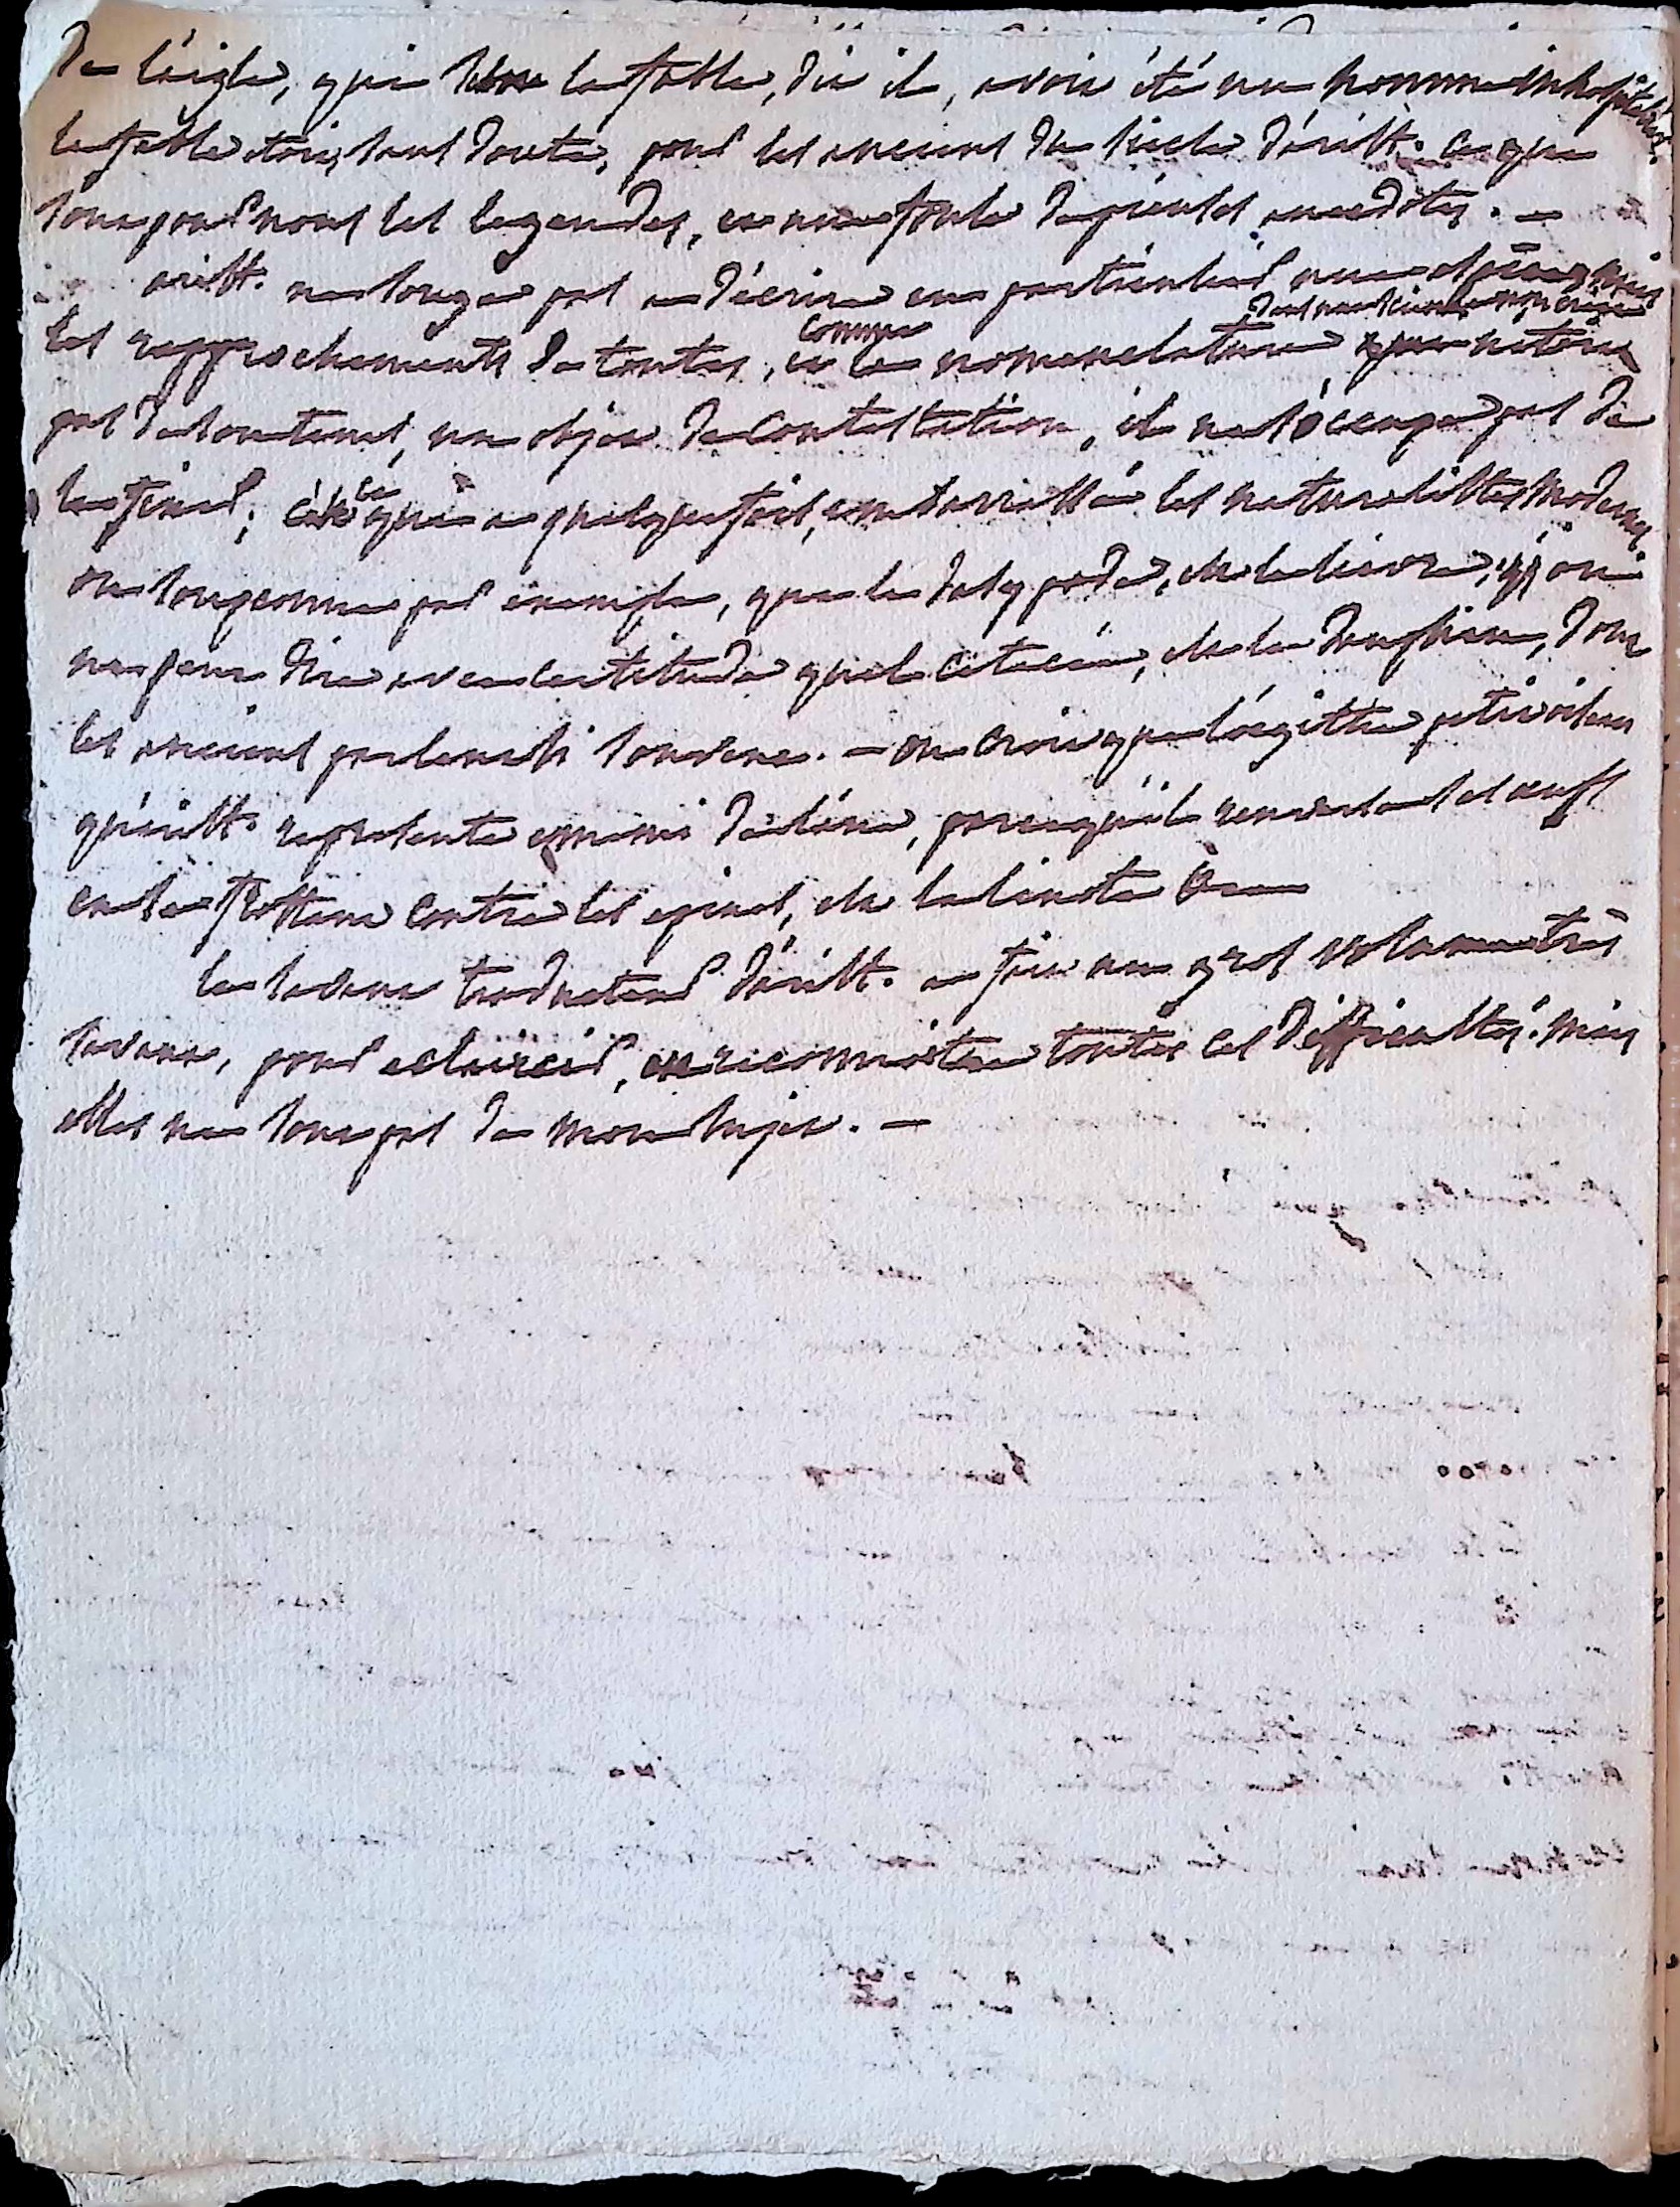 De l'aigle, qui selon la fable, dit il, avoit été un homme inhospitalier.
la fable etoit sans doute, pour les anciens du siècle d'arist. ce que
sont pour nous les legendes, et une foule de pieuses anecdotes. —
arist. ne songea pas a décrire en particulier une espèce, mais
les rapprochements de toutes, et comme la nomenclature n'etoit
pas de son tems, un objet de contestation, il ne s'occupa pas de
la fixer; c'est ce qui a quelquefois, embarrassé les naturalistes modernes.
on soupçonne par exemple, que le dasypode, est le lievre, qu'on
ne peut dire avec certitude quel cetacée, est le dauphin, dont
les anciens parlent si souvent. — on croit que l'oegithe petit oiseau
qu'arist. represente ennemi de l'âne, parcequ'il renverse les oeufs
en se frottant contre les epines, est la linote
le savant traducteur d'arist. a fait un gros volume très
savant, pour eclaircir, et reconnoitre toutes ces difficultés. mais
elles ne sont pas de mon sujet. —